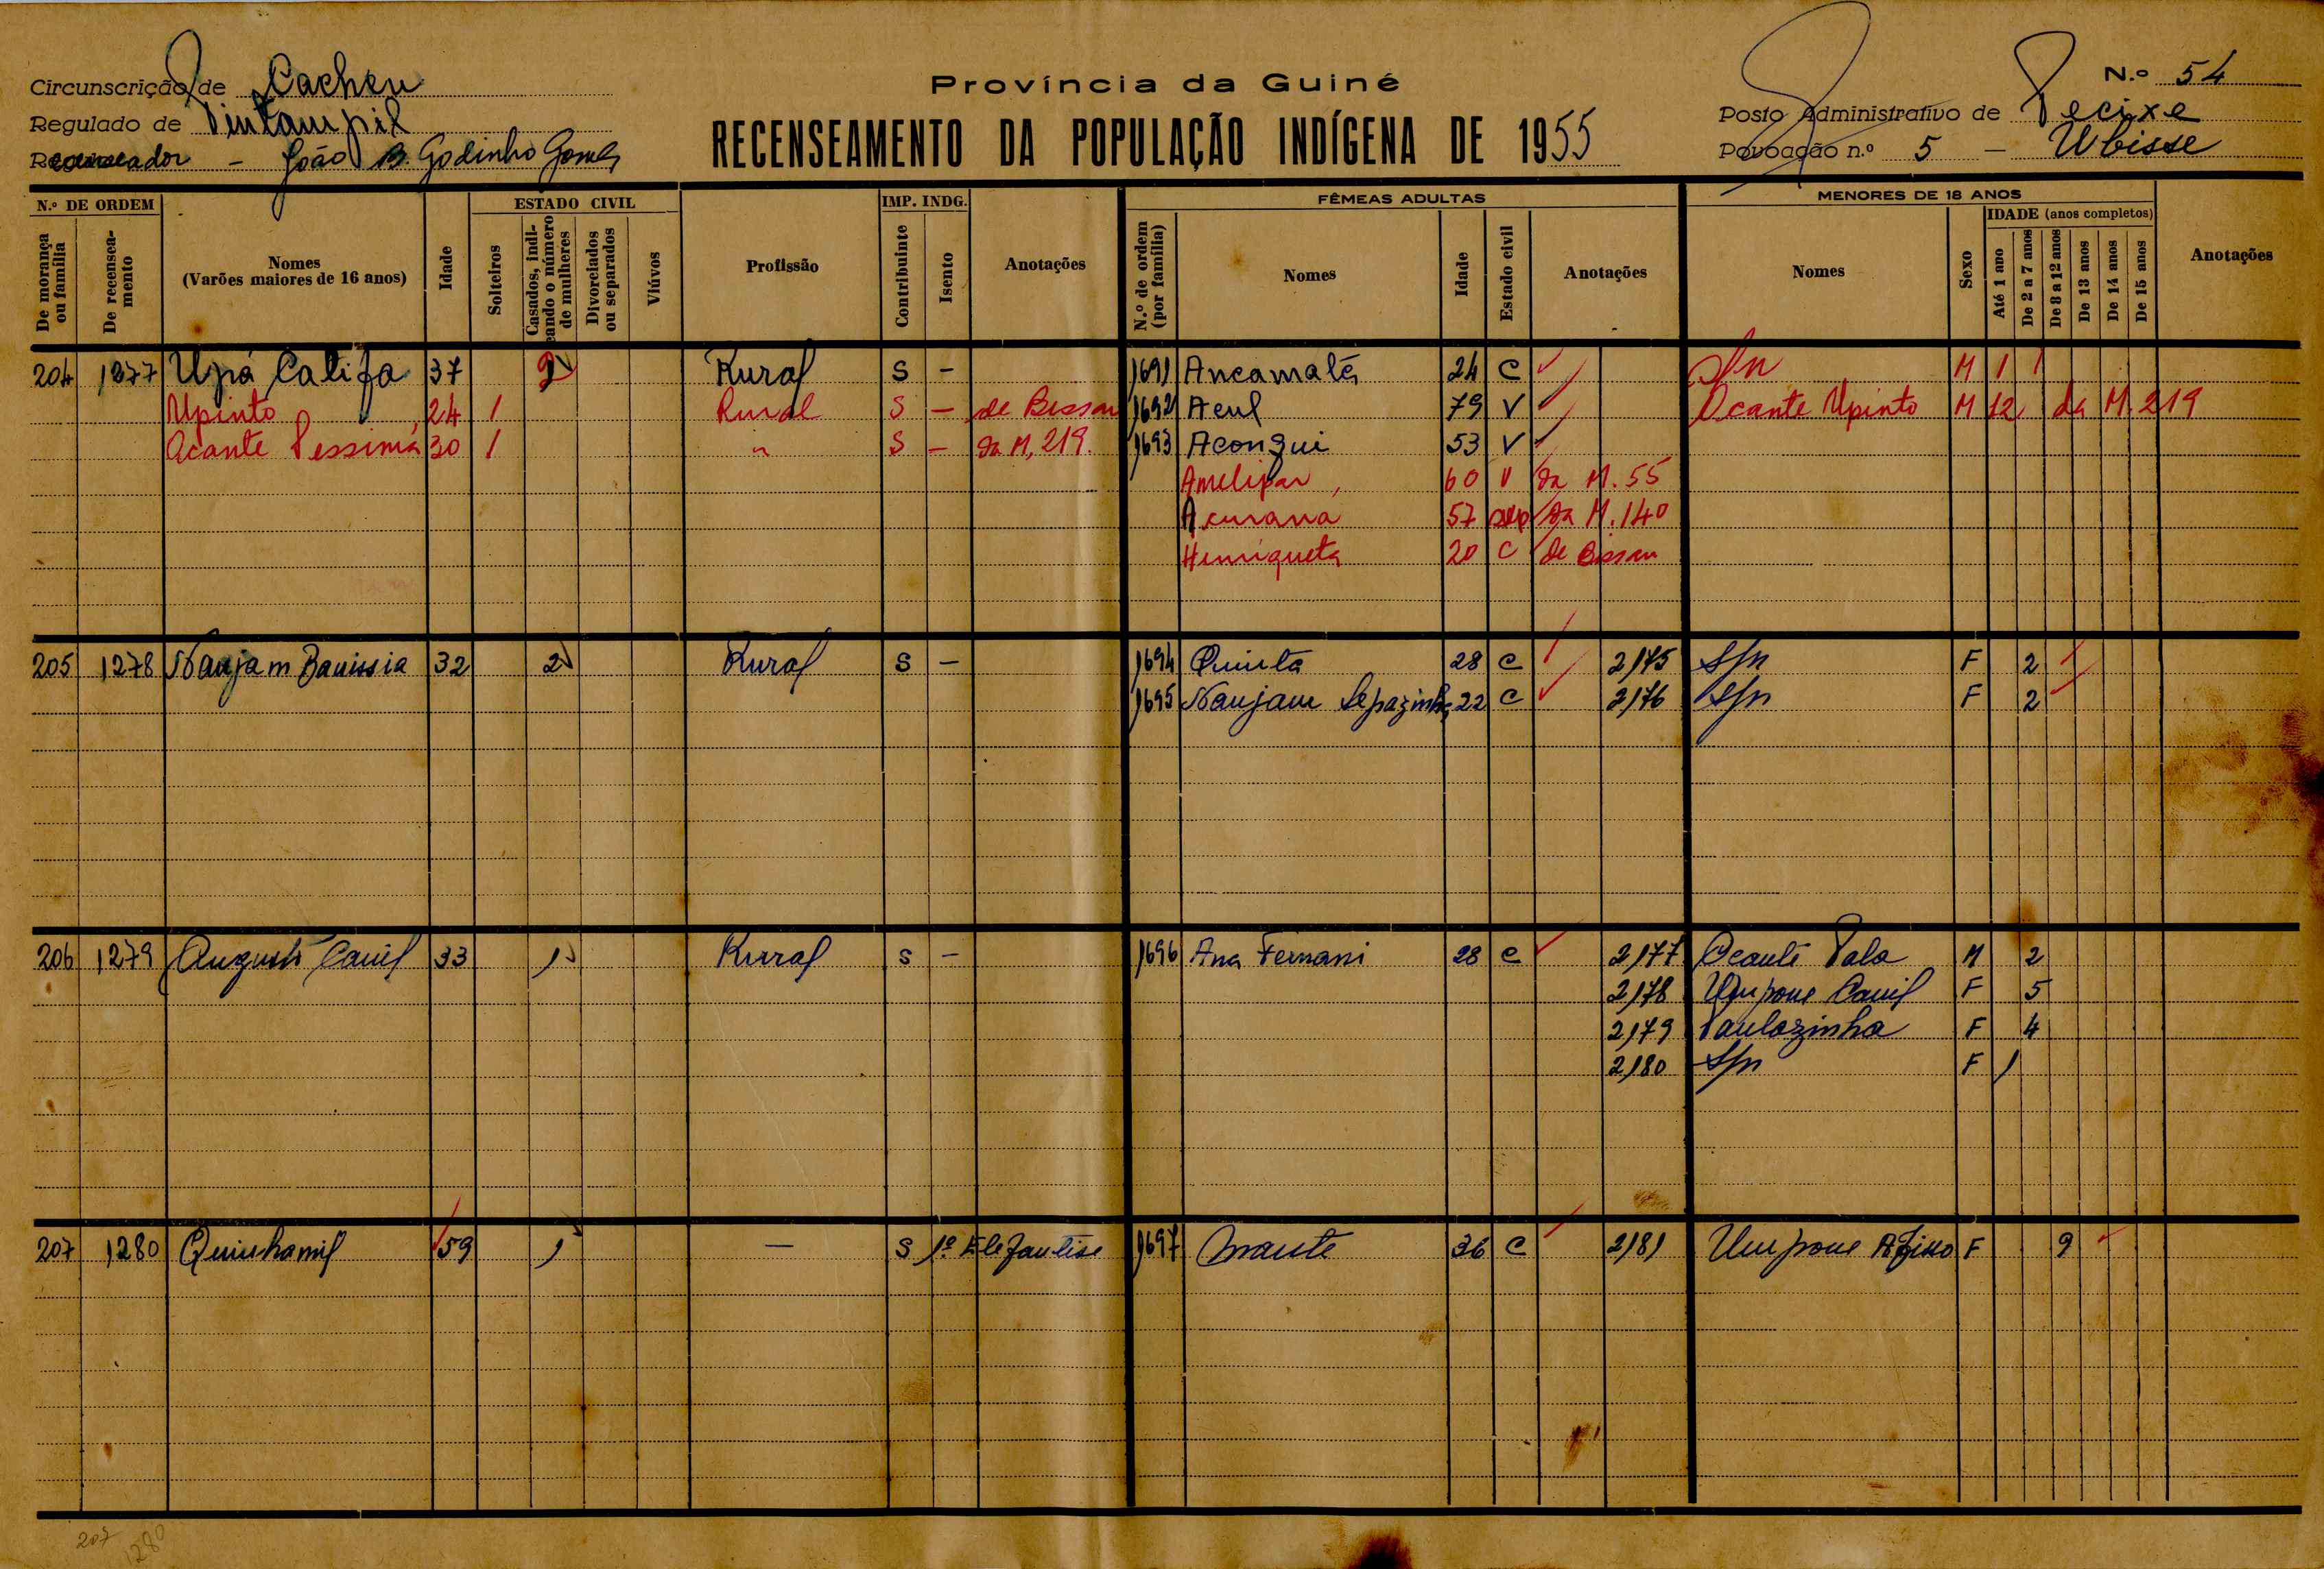 Circunscrição de Cacheu
Província da Guiné
N.º 54
Regulado de Tintampil
Posto Administrativo de Pecixe
Recenseador - João B. Godinho Gomes
RECENSEAMENTO DA POPULAÇÃO INDÍGENA DE 1955
Povoação n.º 5 - Ubisse
N.º DE ORDEM
De morança ou família
De recenseamento
Nomes
(Varões maiores de 16 anos)
Idade
ESTADO CIVIL
Solteiros
Casados, indicando o número de mulheres
Divorciados ou separados
Viúvos
Profissão
IMP. INDG.
Contribuinte
Isento
Anotações
FÊMEAS ADULTAS
N.º de ordem (por família)
Nomes
Idade
Estado civil
Anotações
MENORES DE 18 ANOS
Nomes
Sexo
IDADE (anos completos)
Até 1 ano
De 2 a 7 anos
De 8 a 12 anos
De 13 anos
De 14 anos
De 15 anos
Anotações
204 1277 Upá Califa 37 2 Rural S - 1691 Ancamatá 24 C S/n M 1
Upinto 24 1 Rural S - de Bissau 1692 Acul 79 V Ocante Upinto M 12 da M. 219
Acante Pessima 30 1 " S - da M, 219. 1693 Acongui 53 V
Amelipar 60 V da M. 55
57 sep da M. 140
Henriqueta 20 C de Bissau
205 1278 Naujam Banissia 32 2 Rural S - 1694 Quinta 28 C 2175 S/n F 2
1695 Naujam Sepazinha 22 C 2176 S/n F 2
206 1279 Augusto Canil 33 1 Rural S - 1696 Ana Fernani 28 C 2177 Ocante Pala M 2
2178 Umpone Canil F 5
2179 Paulozinha F 4
2180 S/n F 1
207 1280 Quinhamil 59 1 - S 1º Elefantise 1697 36 C 2181 Umpone F 9
207
1280